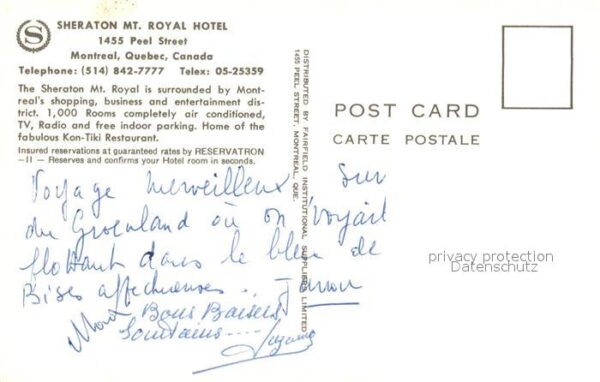 S
SHERATON MT. ROYAL HOTEL
1455 Peel Street
Montreal, Quebec, Canada
Telephone: (514) 842-7777 Telex: 05-25359
The Sheraton Mt. Royal is surrounded by Mont-
real's shopping, business and entertainment dis-
trict. 1,000 Rooms completely air conditioned,
TV, Radio and free indoor parking. Home of the
fabulous Kon-Tiki Restaurant.
Insured reservations at guaranteed rates by RESERVATRON
-II - Reserves and confirms your Hotel room in seconds.
DISTRIBUTED BY FAIRFIELD INSTITUTIONAL SUPPLIERS LIMITED
1455 PEEL STREET, MONTREAL, QUE.
POST CARD
CARTE POSTALE
Voyage merveilleux sur
du Groenland où on voyait
flottant dans le bleu de
Bises affectueuses ..
Bons Baisers
lointains ----
privacy protection
Datenschutz